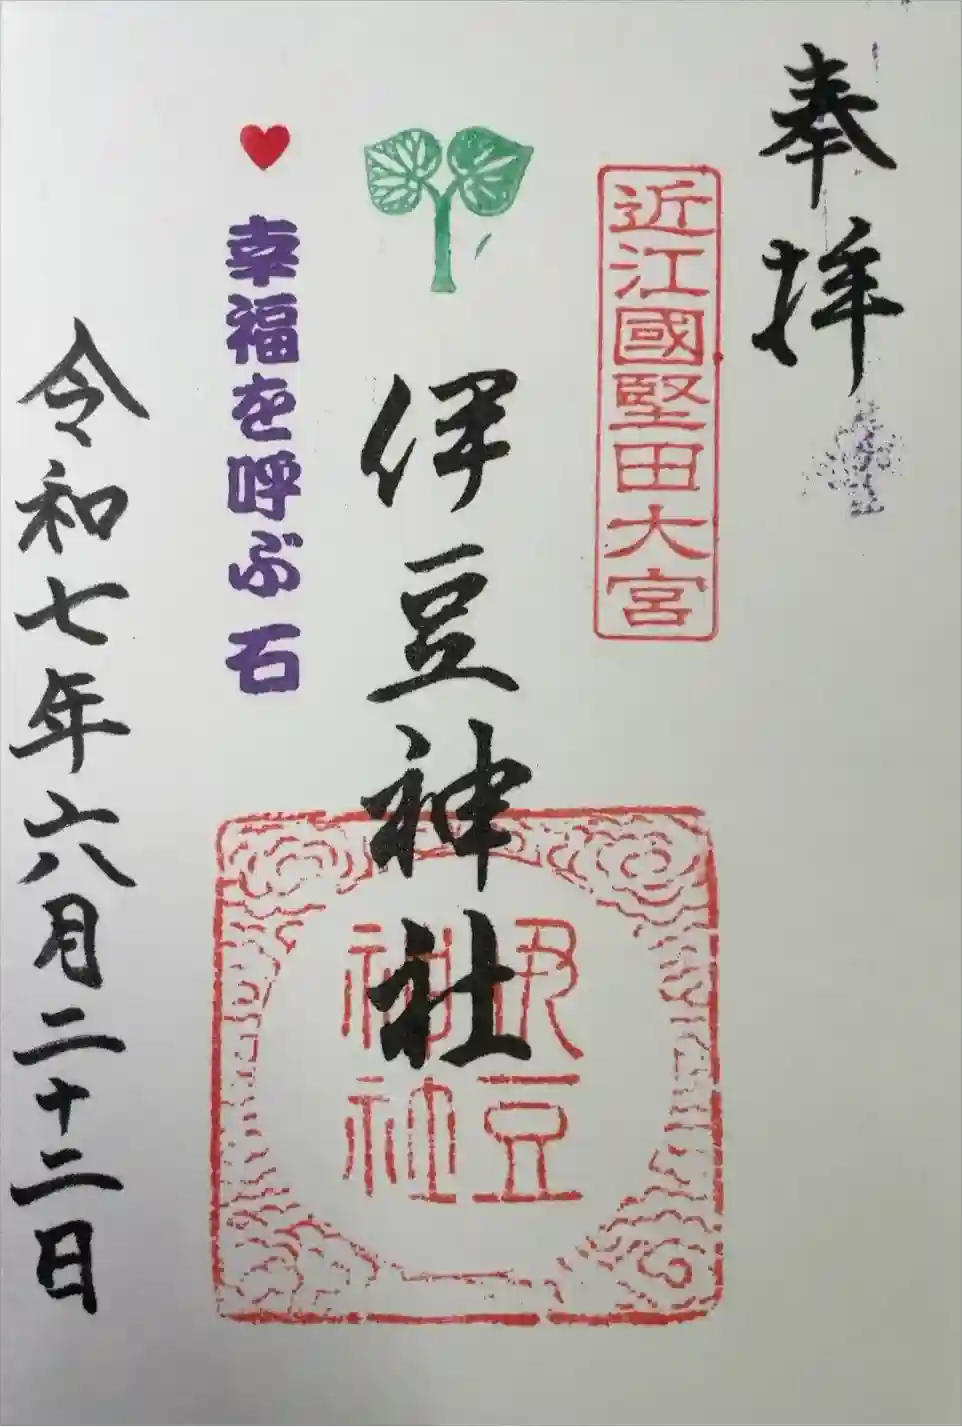 奉拝
近江國堅田大宮
伊豆神社
伊豆
神社
幸福を呼ぶ石
令和七年六月二十二日